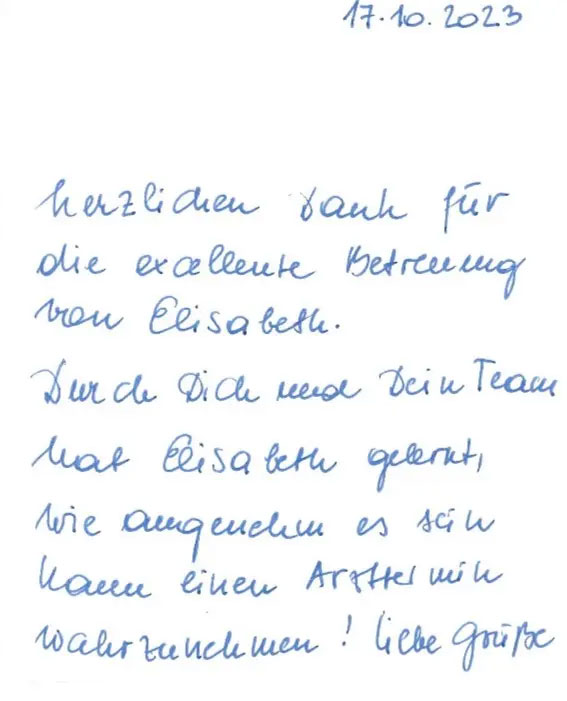 17.10.2023
Herzlichen Dank für
die excellente Betreuung
von Elisabeth.
Durch Dich und Dein Team
hat Elisabeth gelernt,
wie angenehm es sein
kann einen Arzttermin
wahrzunehmen! liebe Grüße